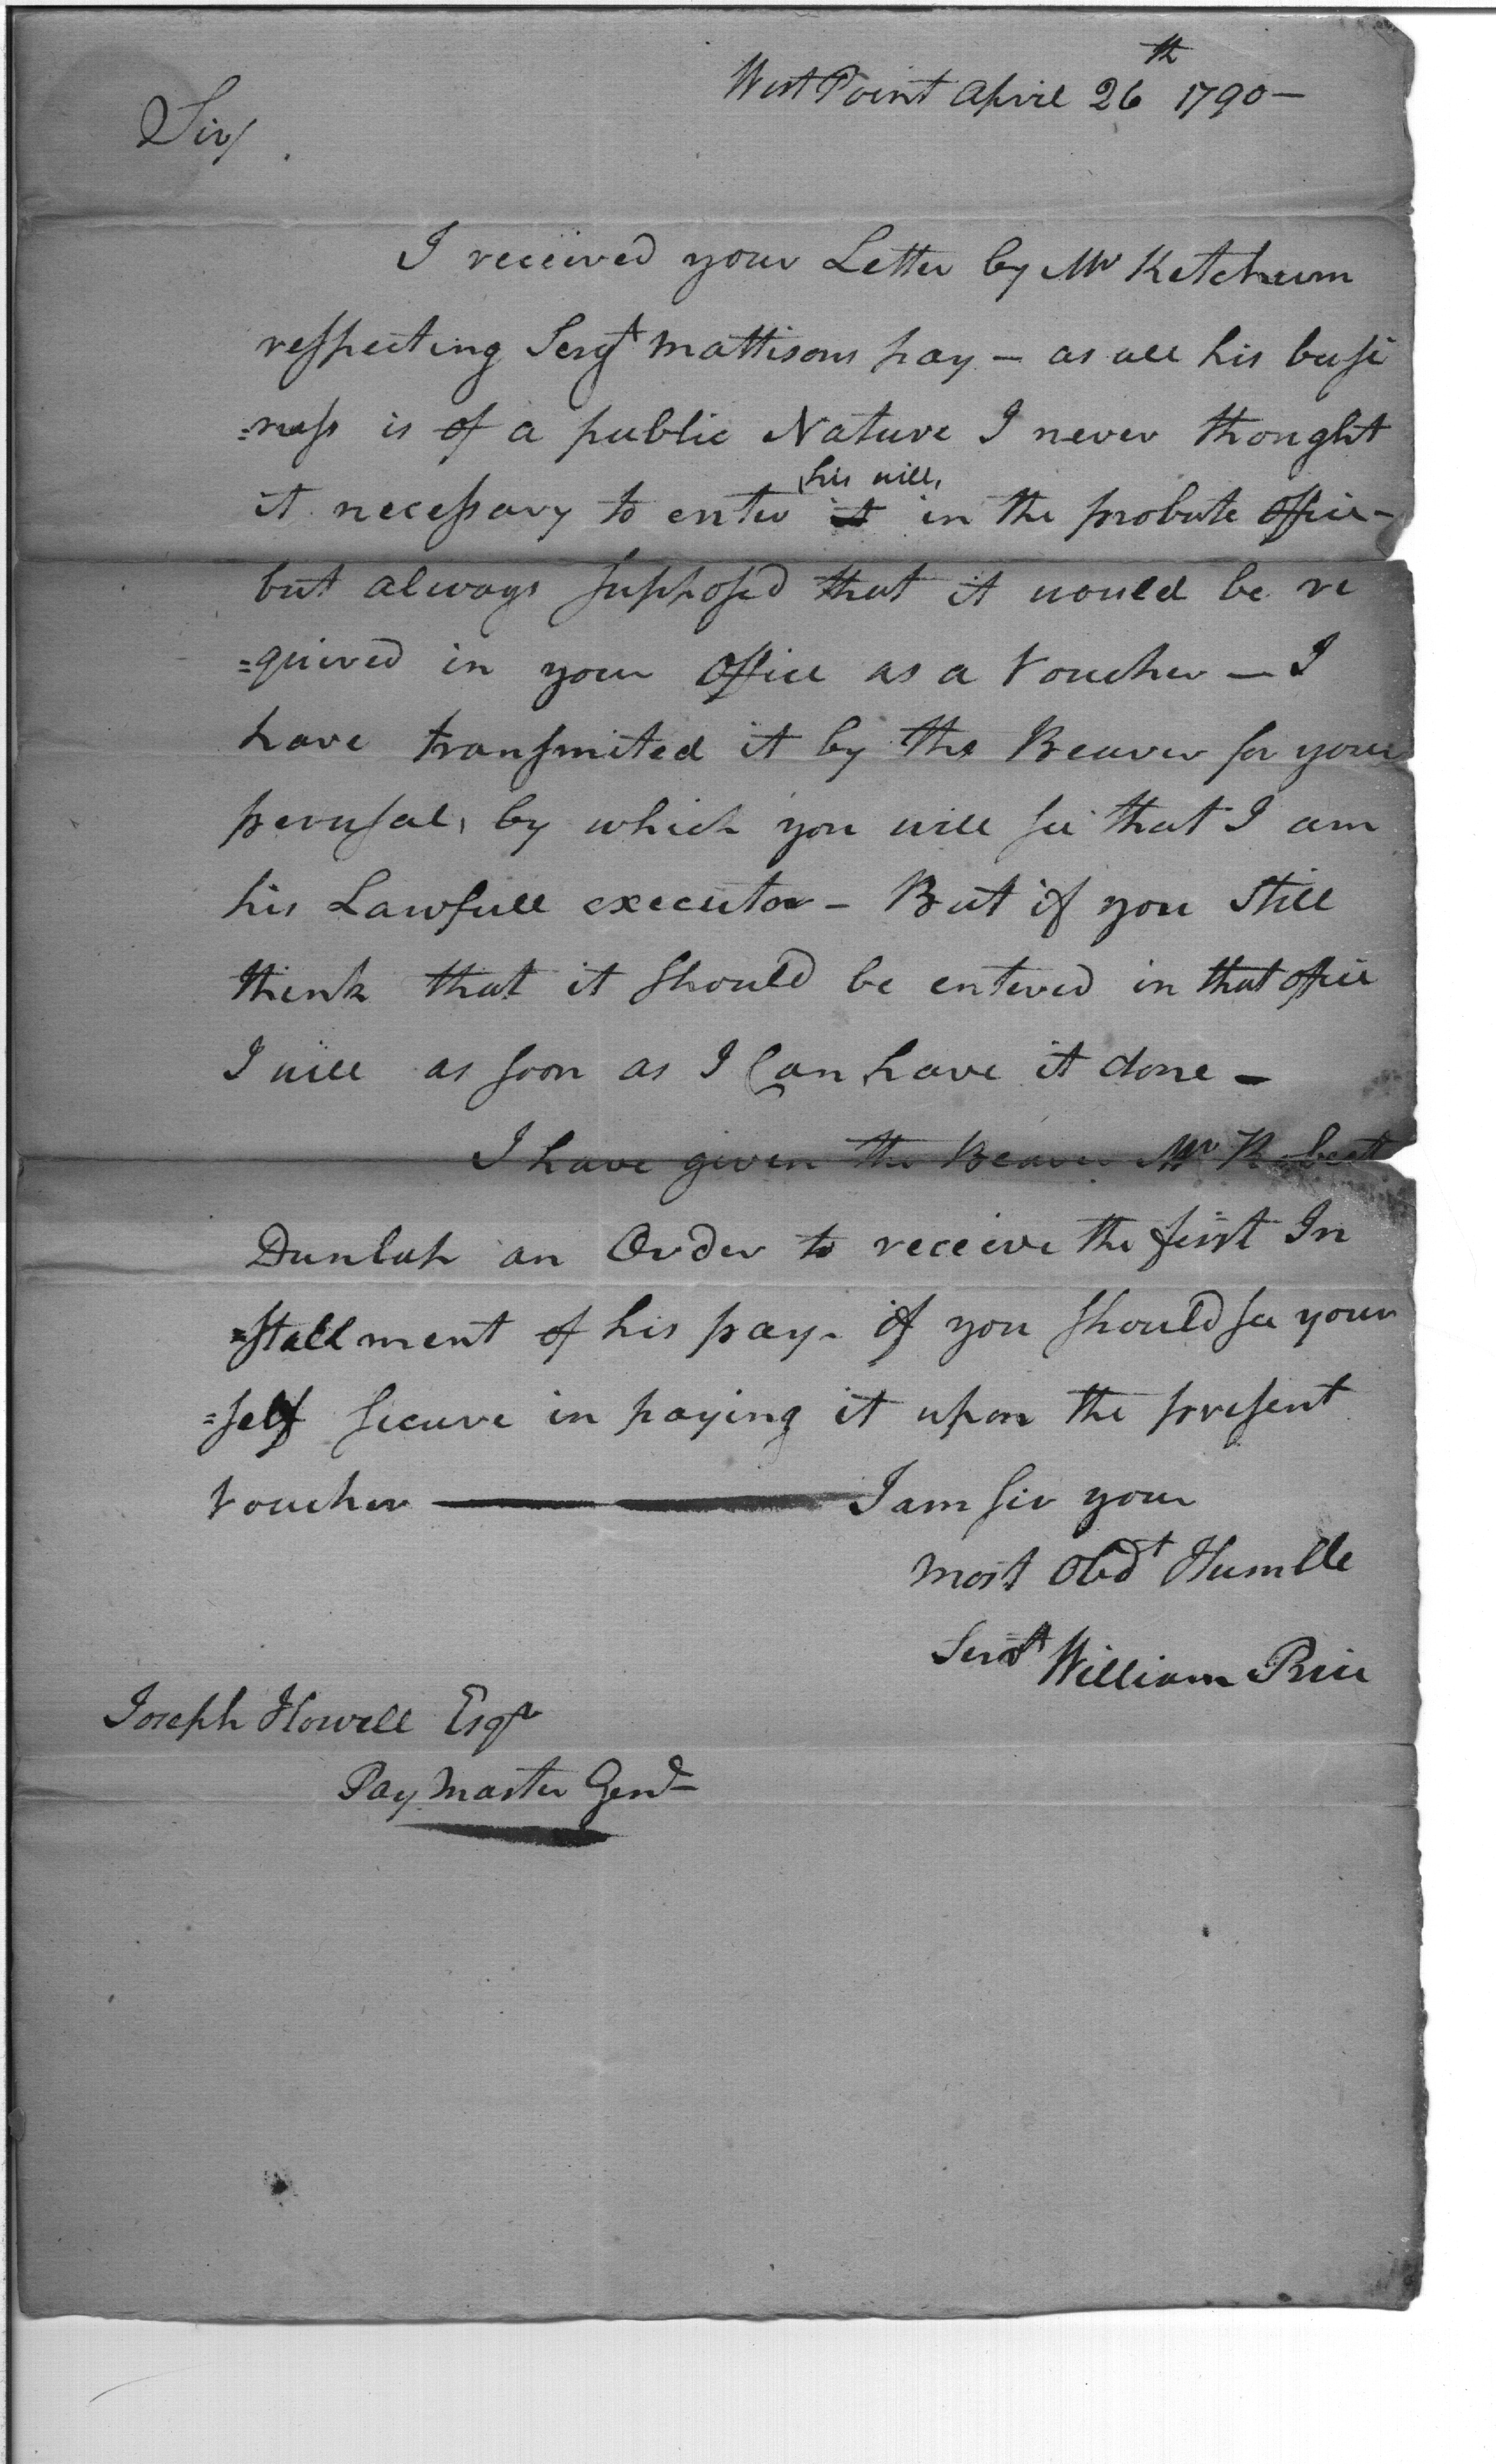 West Point April 26th 1790 –
Sir/
I received your Letter by Mr Ketchum
respecting Sergt Mattisons pay – as all his busi
=ness is of a public Nature I never thought
his will,
it necessary to enter it in the probate office –
but always supposed that it would be re
=quired in your Office as a Voucher – I
have transmited it by the Bearer for your
perusal, by which you will see that I am
his Lawfull executor – But if you Still
think that it Should be entered in that office
I will as soon as I Can have it done –
I have given the Bearer Mr Robert
Dunlap an Order to receive the first In
=stallment of his pay. if you Should see your
=self secure in paying it upon the present
Voucher — I am Sir your
most Obdt Humble
Servt William Price
Joseph Howell Esqr
Pay Master Genl